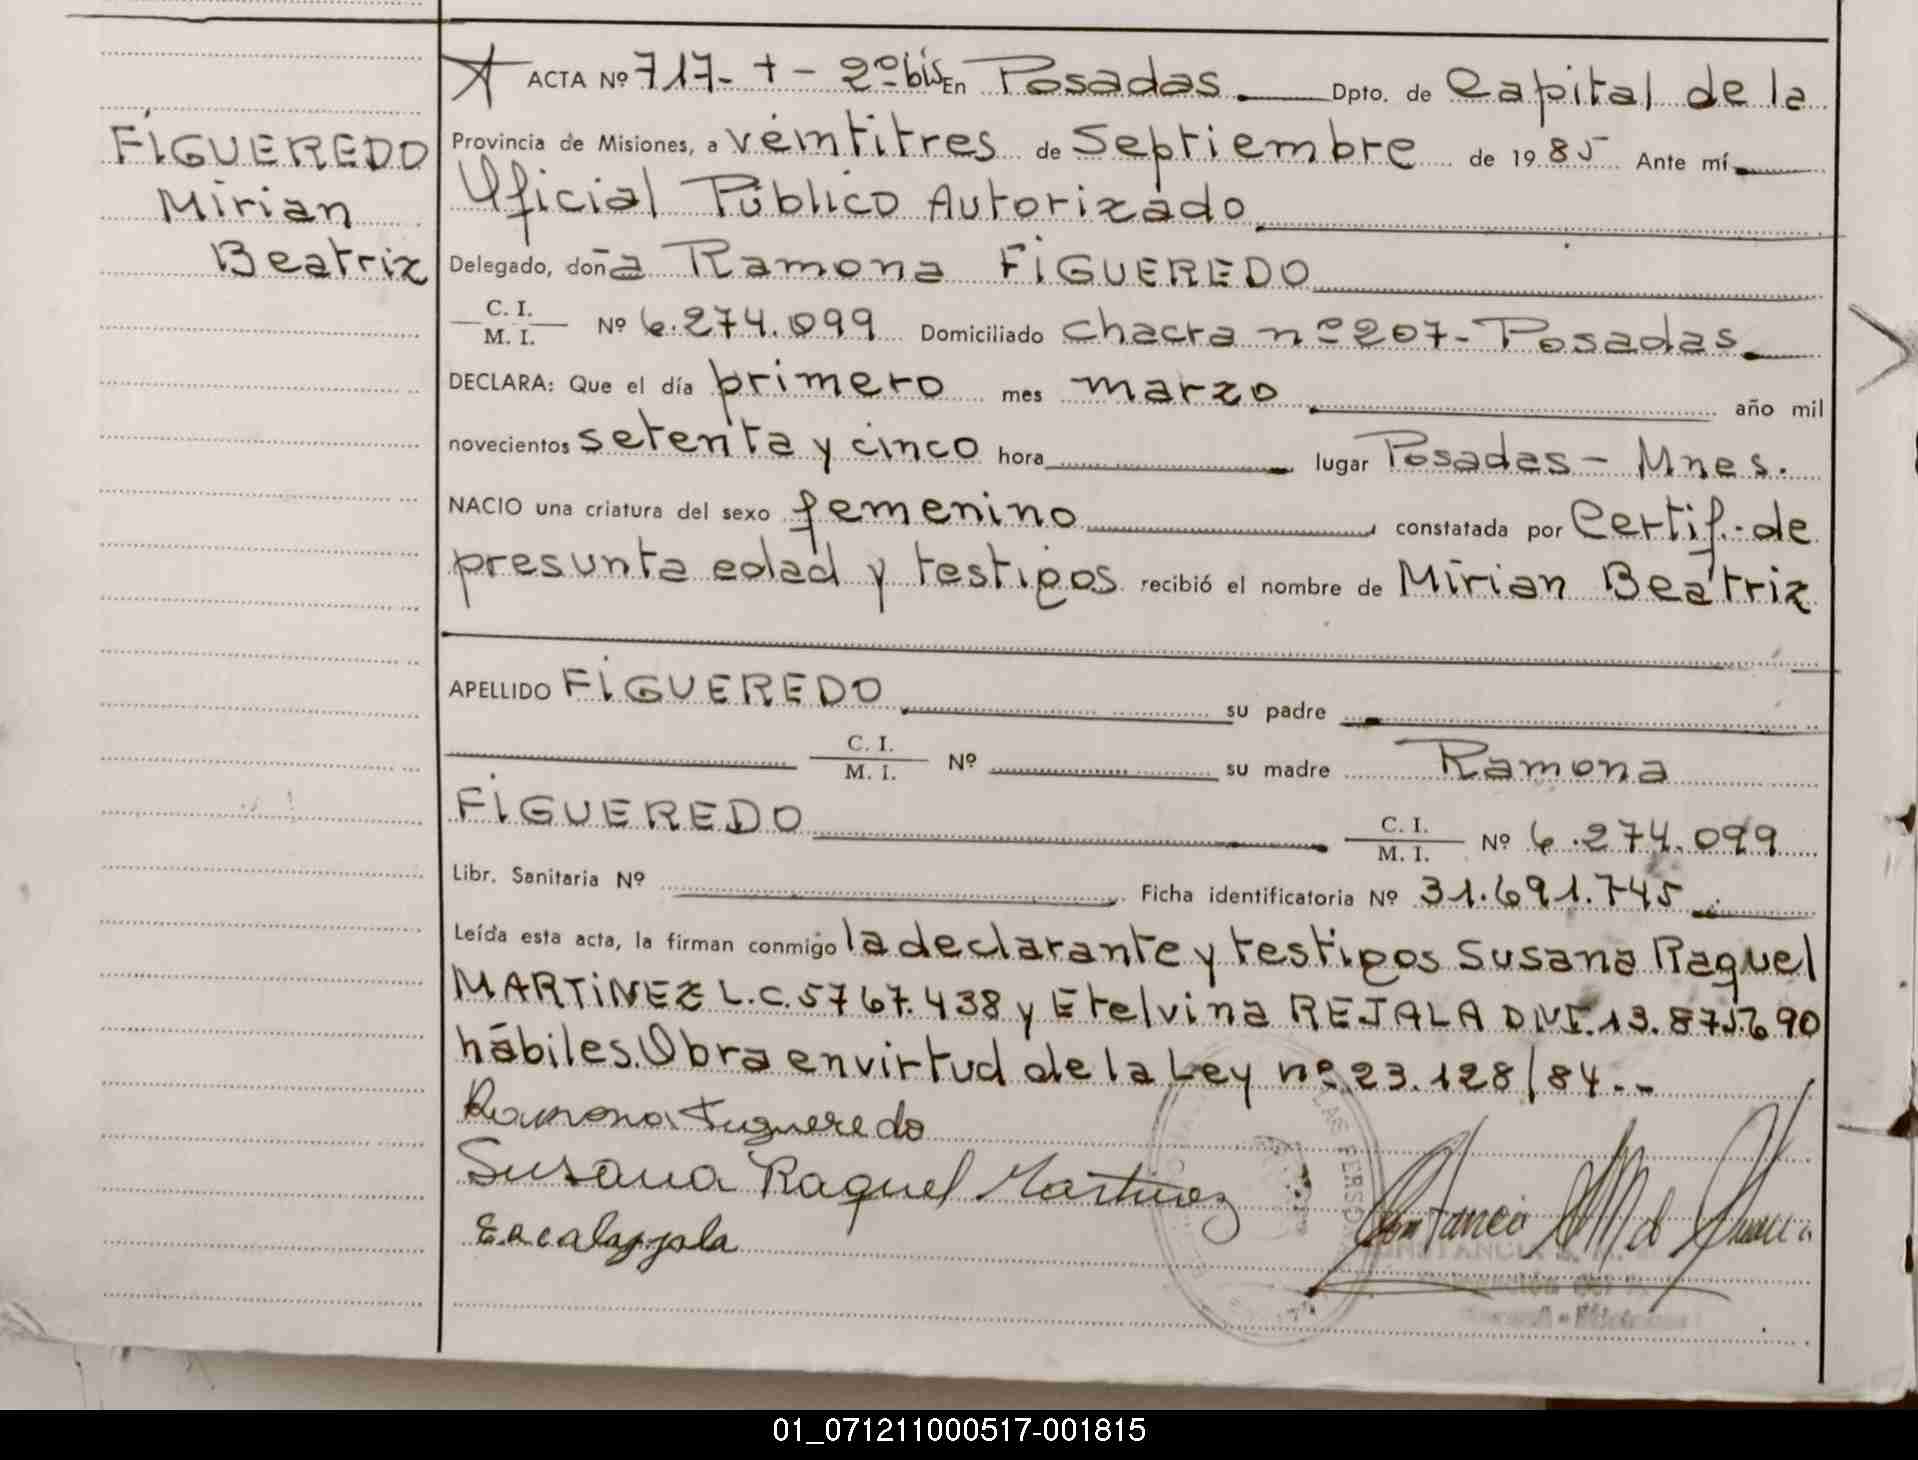 FIGUEREDO
Mirian
Beatriz
ACTA Nº 717- + - 2º bis En Posadas Dpto. de Capital de la
Provincia de Misiones, a veintitres de Septiembre de 1985 Ante mí
Oficial Público Autorizado
Delegado, doña Ramona FIGUEREDO
C. I.
M. I. Nº 6.274.099 Domiciliado chacra nº 207- Posadas
DECLARA: Que el día primero mes marzo año mil
novecientos setenta y cinco hora lugar Posadas - Mnes.
NACIO una criatura del sexo femenino constatada por Certif. de
presunta edad y testigos recibió el nombre de Mirian Beatriz
APELLIDO FIGUEREDO su padre
C. I.
M. I. Nº su madre Ramona
FIGUEREDO C. I.
M. I. Nº 6.274.099
Libr. Sanitaria Nº Ficha identificatoria Nº 31.691.745
Leída esta acta, la firman conmigo la declarante y testigos Susana Raquel
MARTINEZ L.C. 5767.438 y Etelvina REJALA DNI. 13.875.690
hábiles. Obra en virtud de la Ley nº 23.128/84.-
Ramona Figueredo
Susana Raquel Martinez
01_071211000517-001815